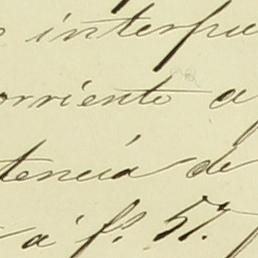 interpu
orriente a
tencia de
á fs. 57.